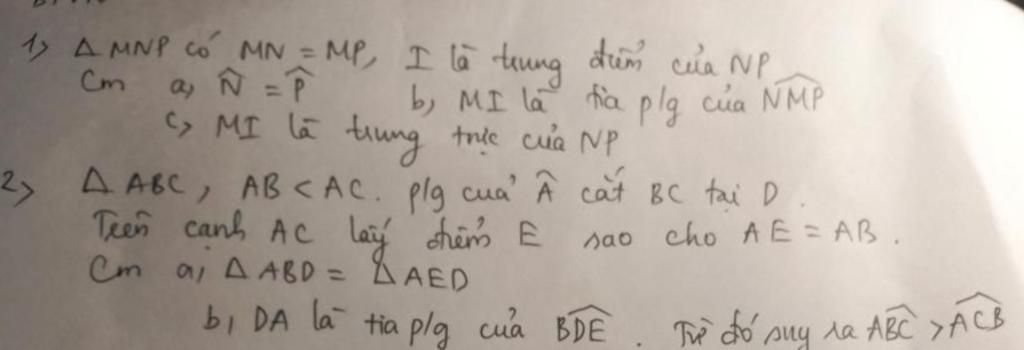 1) △ MNP có MN = MP, I là trung điểm của NP
Cm a, N̂ = P̂ b, MI là tia p/g của \widehat{NMP}
c, MI là trung trực của NP
2) △ ABC, AB < AC. p/g của Â cắt BC tại D.
Trên cạnh AC lấy điểm E sao cho AE = AB.
Cm a, △ ABD = △ AED
b, DA là tia p/g của \widehat{BDE}. Từ đó suy ra \widehat{ABC} > \widehat{ACB}